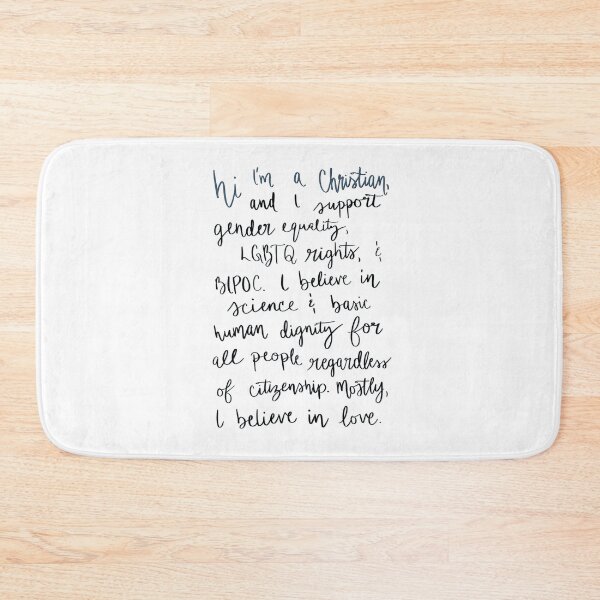 hi I'm a Christian,
and I support
gender equality,
LGBTQ rights, &
BIPOC. I believe in
science & basic
human dignity for
all people regardless
of citizenship. Mostly,
I believe in love.